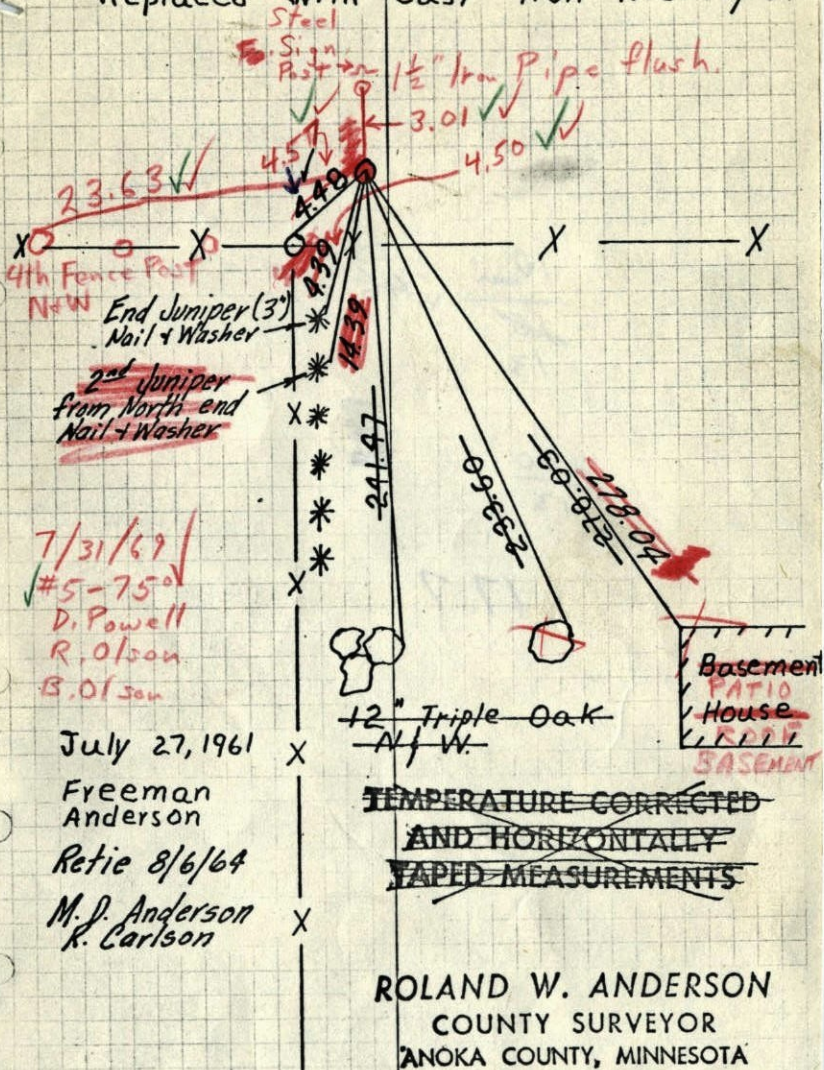 Replaced with Cast Iron
Steel
Sign
Post
1½" Iron Pipe flush.
3.01
4.5
4.50
23.63
4.48
X X X X
4th Fence Post
N&W
4.39
End Juniper (3")
Nail & Washer
14.39
2nd Juniper
from North end
Nail & Washer
X
241.97
233.60
278.03
278.04
7/31/69
#5-75°
D. Powell
R. Olson
B. Olson
X
Basement
PATIO
House
ROOF
BASEMENT
12" Triple Oak
N & W
July 27, 1961
X
Freeman
Anderson
TEMPERATURE CORRECTED
AND HORIZONTALLY
TAPED MEASUREMENTS
Retie 8/6/64
M. D. Anderson
K. Carlson
X
ROLAND W. ANDERSON
COUNTY SURVEYOR
ANOKA COUNTY, MINNESOTA